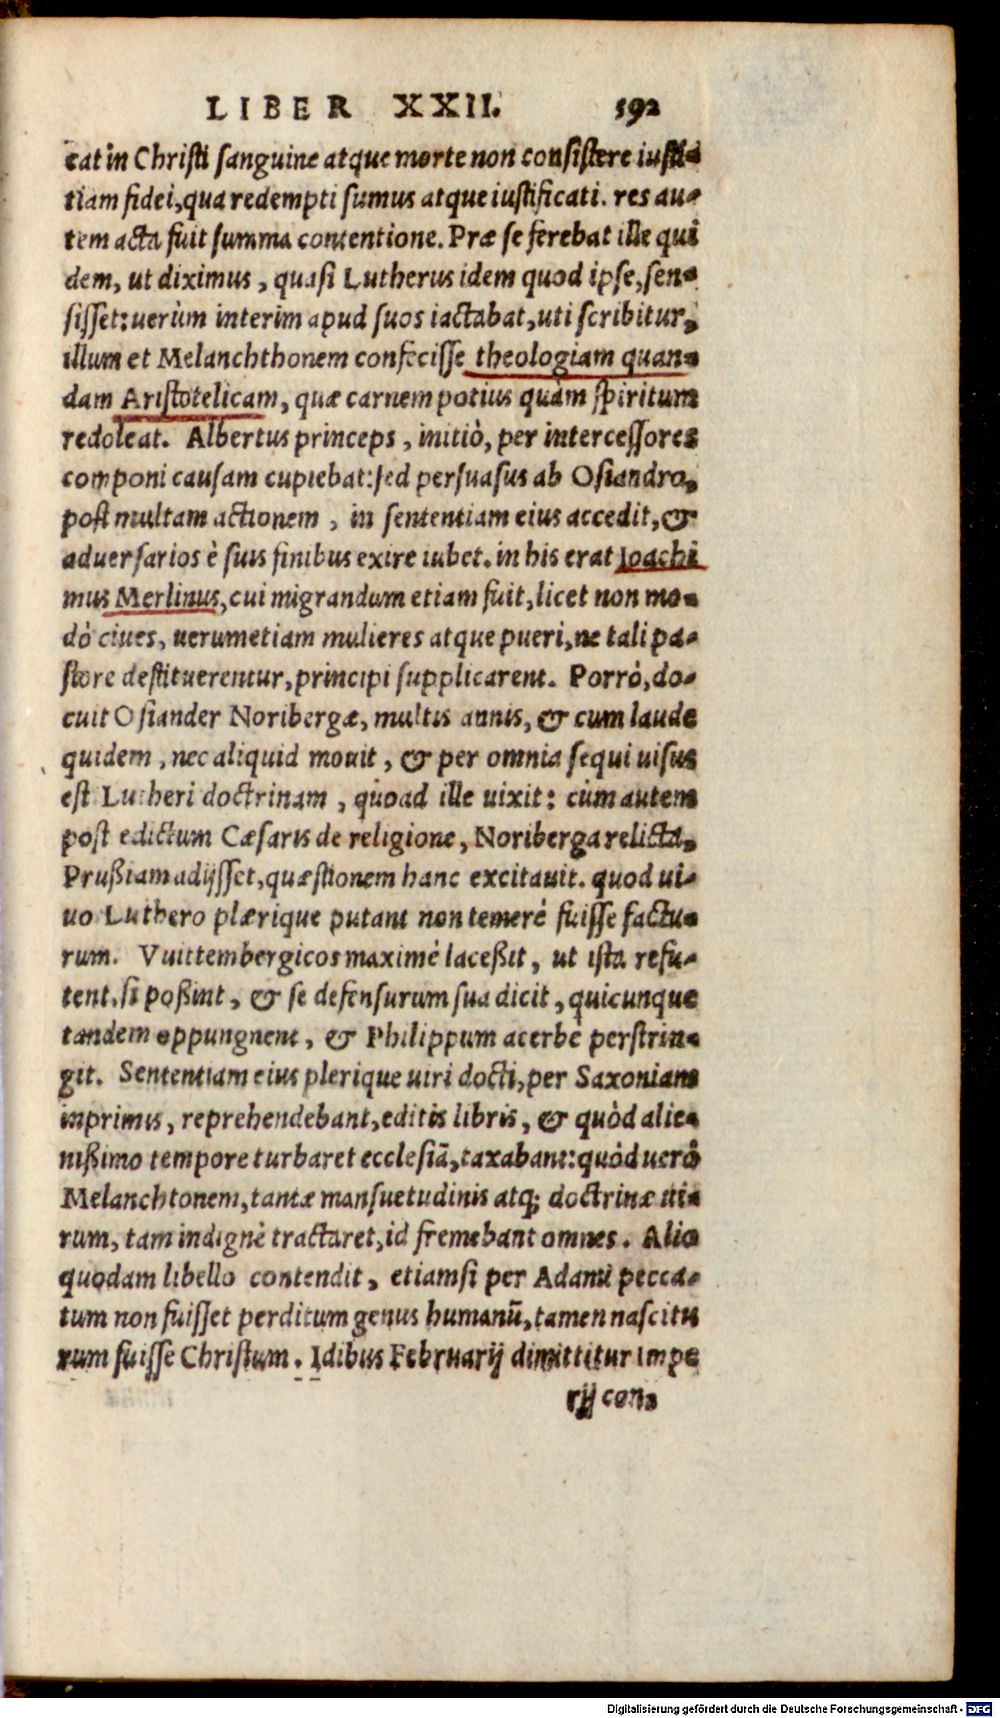 LIBER XXII. 592
cat in Christi sanguine atque morte non consistere iusti-
tiam fidei, qua redempti sumus atque iustificati. res au-
tem acta fuit summa contentione. Præ se ferebat ille qui
dem, ut diximus, quasi Lutherus idem quod ipse, sen-
sisset: uerùm interim apud suos iactabat, uti scribitur,
illum et Melanchthonem confecisse theologiam quan-
dam Aristotelicam, quæ carnem potius quàm spiritum
redoleat. Albertus princeps, initiò, per intercessores
componi causam cupiebat: sed persuasus ab Osiandro,
post multam actionem, in sententiam eius accedit, &
aduersarios è suis finibus exire iubet. in his erat Ioachi
mus Merlinus, cui migrandum etiam fuit, licet non mo-
dò ciues, uerumetiam mulieres atque pueri, ne tali pa-
store destituerentur, principi supplicarent. Porrò, do-
cuit Osiander Noribergæ, multis annis, & cum laude
quidem, nec aliquid mouit, & per omnia sequi uisus
est Lutheri doctrinam, quoad ille uixit: cùm autem
post edictum Cæsaris de religione, Noriberga relicta,
Prußiam adijsset, quæstionem hanc excitauit. quod ui-
uo Luthero plærique putant non temerè fuisse factu-
rum. Vuittembergicos maximè laceßit, ut ista refu-
tent, si poßint, & se defensurum sua dicit, quicunque
tandem oppungnent, & Philippum acerbè perstrin-
git. Sententiam eius plerique uiri docti, per Saxoniam
inprimis, reprehendebant, editis libris, & quòd alie-
nißimo tempore turbaret ecclesiã, taxabant: quòd uerò
Melanchtonem, tantæ mansuetudinis atq; doctrinæ ui-
rum, tam indignè tractaret, id fremebant omnes. Alio
quodam libello contendit, etiamsi per Adamũ pecca-
tum non fuisset perditum genus humanũ, tamen nascitu
rum fuisse Christum. Idibus Februarij dimittitur impe
rij con-
Digitalisierung gefördert durch die Deutsche Forschungsgemeinschaft - DFG